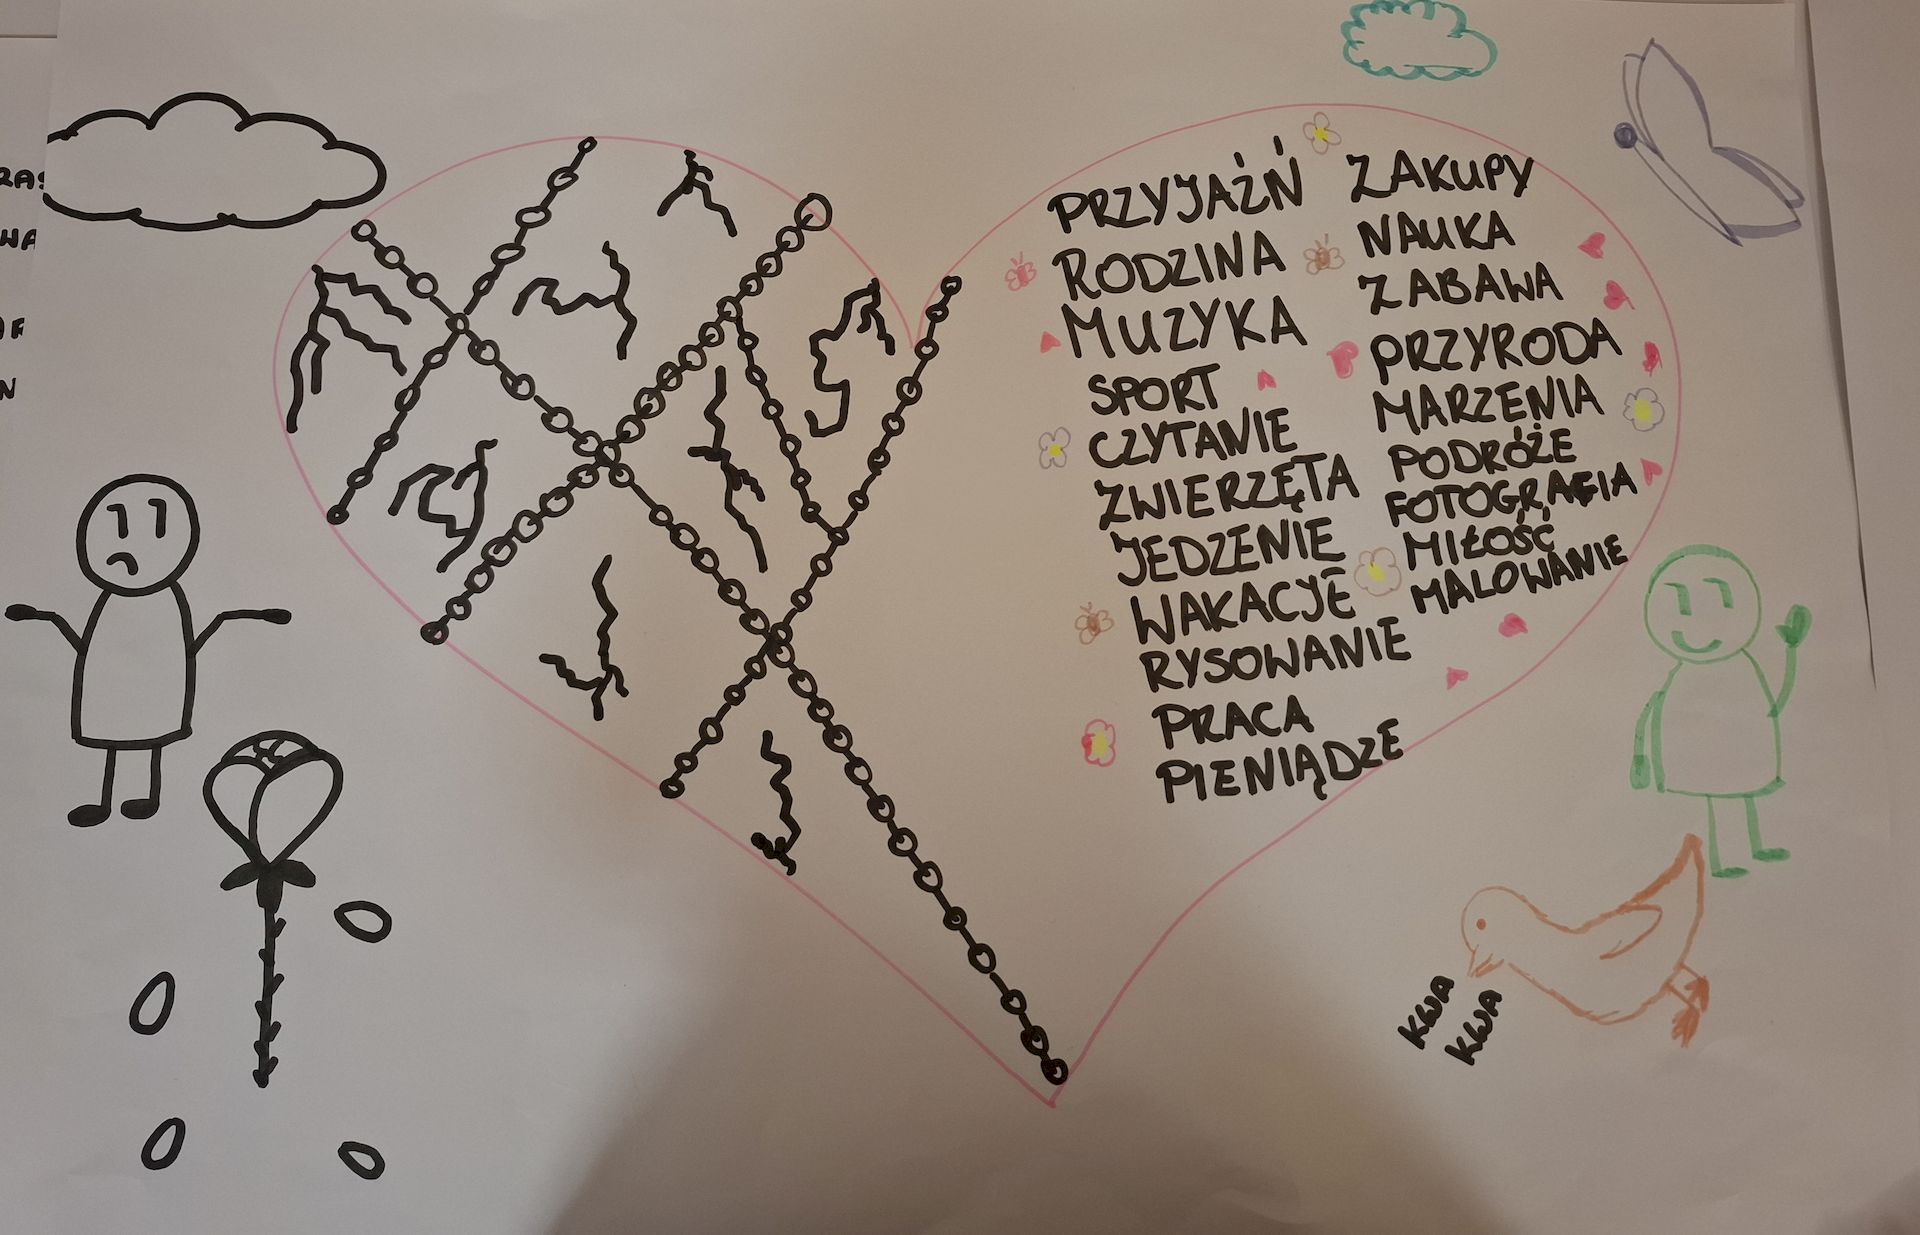 PRZYJAŹŃ
RODZINA
MUZYKA
SPORT
CZYTANIE
ZWIERZĘTA
JEDZENIE
WAKACJE
RYSOWANIE
PRACA
PIENIĄDZE
ZAKUPY
NAUKA
ZABAWA
PRZYRODA
MARZENIA
PODRÓŻE
FOTOGRAFIA
MIŁOŚĆ
MALOWANIE
KWA
KWA